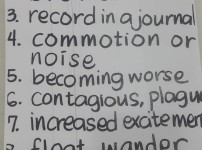 3. record in a journal
4. commotion or
noise
5. becoming worse
6. contagious, plagu
7. increased excitemen
float, wander